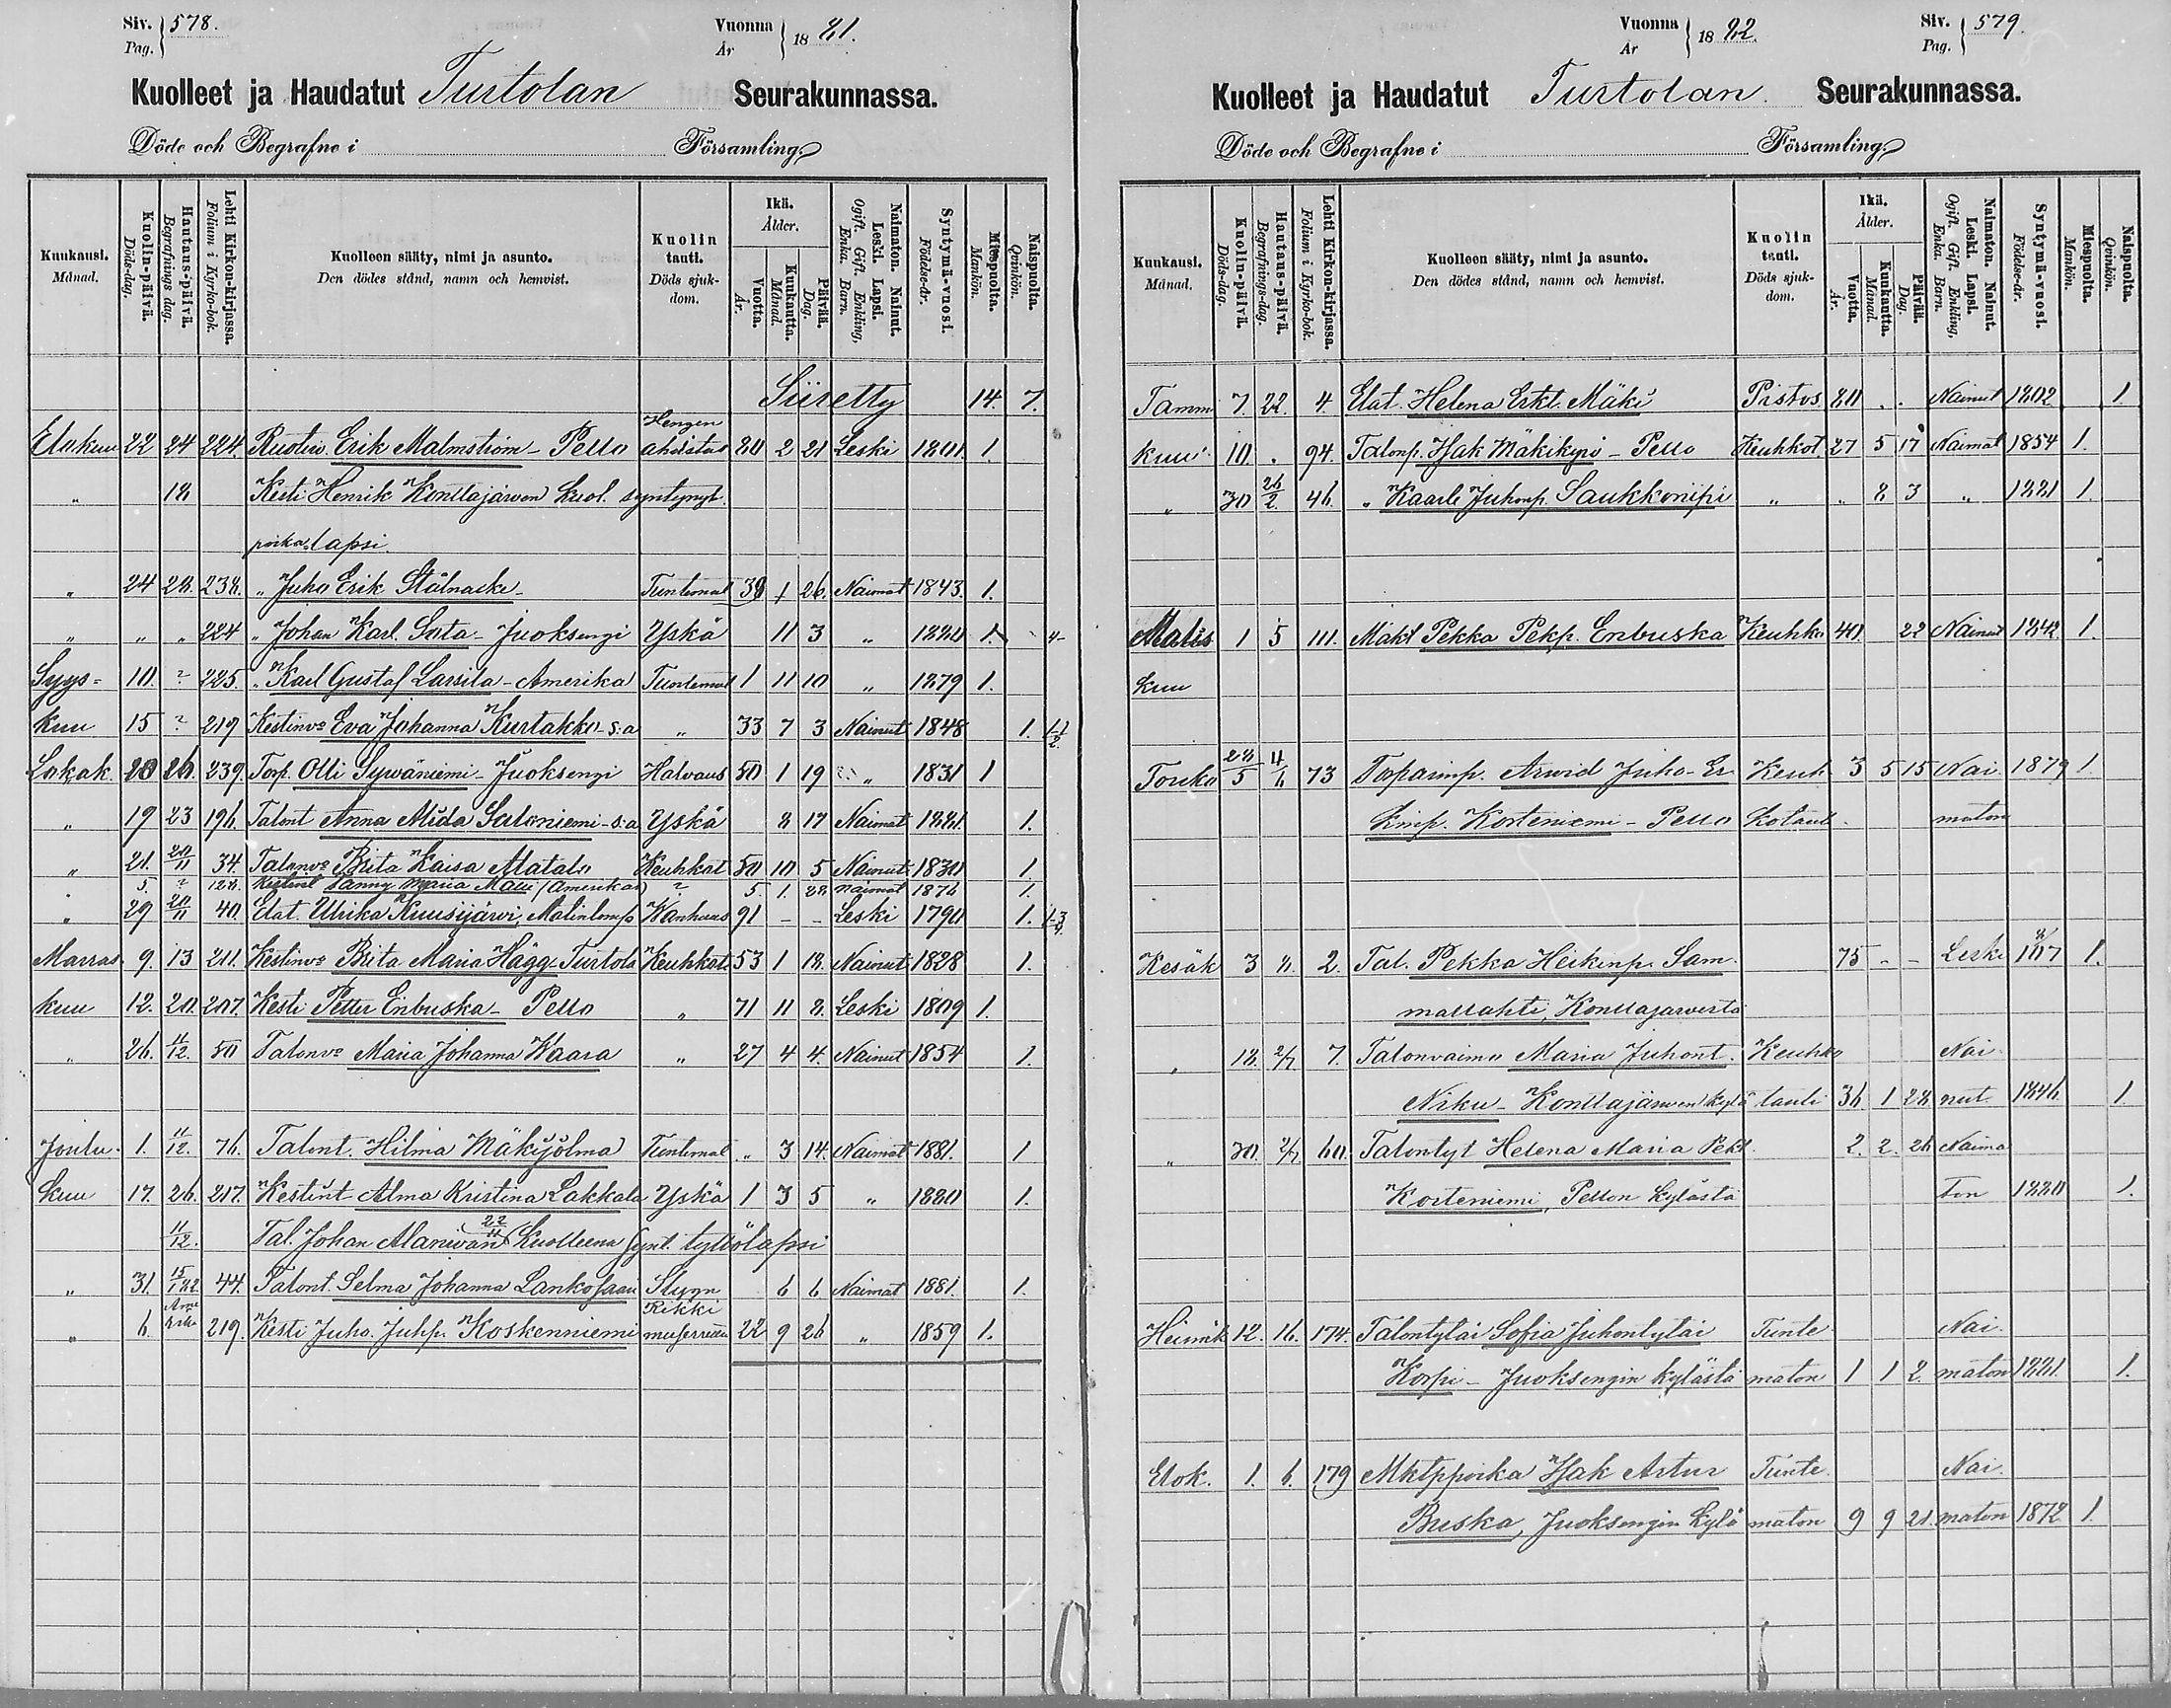 Siv. 578.
Pag.
Vuonna 1881.
År
Kuolleet ja Haudatut Turtolan Seurakunnassa.
Döde och Begrafne i Församling.
Kuukausi. Månad.
Kuolin-päivä. Döds-dag.
Hautaus-päivä. Begrafnings dag.
Lehti Kirkon-kirjassa. Folium i Kyrko-bok.
Kuolleen sääty, nimi ja asunto. Den dödes stånd, namn och hemvist.
Kuolin tauti. Döds sjuk-dom.
Ikä. Ålder.
Vuotta. År.
Kuukautta. Månad.
Päivää. Dag.
Naimaton. Nainut. Leski. Lapsi. Ogift. Gift. Enkling, Enka. Barn.
Syntymä-vuosi. Födelse-år.
Miespuolta. Mankön.
Naispuolta. Qvinkön.
Siiretty 14. 7.
Elokuu 22 24 224. Ruotiv. Erik Malmström - Pello Hengen ahdistus 80 2 21 Leski 1801. 1.
" 18 Kesti Henrik Konttajärven kuol. syntynyt
poika lapsi.
" 24 28. 238. " Juho Erik Stålnacke Tuntemat 38 1 26. Naimat 1843. 1.
" " " 224 " Johan Karl Sata - Juoksengi Yskä 11 3 " 1880 1.
Syys- 10. ? 225. " Karl Gustaf Larsila - Amerika Tuntemat 1 11 10 " 1879 1.
kuu 15 ? 219 Kestinvo Eva Johanna Kurtakko - S:a " 33 7 3 Nainut 1848 1.
Lokak. 20 26. 239. Torp. Olli Sywäniemi - Juoksengi Halvaus 50 1 19 " 1831 1
" 19 23 196. Talont Anna Alida Saloniemi - S:a Yskä 8 17 Naimat 1881. 1.
" 21. 20/11 34. Talonvo Brita Kaisa Alatalo Keuhkot 50 10 5 Nainut 1830 1
" 5. ? 128. Kestint Fanny Maria Mäki (Amerikas) ? 5. 1. 28 naimat 1876 1.
" 29 20/11 40. Elat. Ulrika Kuusijärvi, Matinlompo Wanhuus 91 - - Leski 1790 1.
Marras 9. 13 211. Kestinvo Brita Maria Hägg - Turtola Keuhkot 53 1 18. Nainut 1828 1.
kuu 12. 20. 207. Kesti Petter Enbuska - Pello " 71 11 8. Leski 1809 1.
" 26. 11/12. 50 Talonvo Maria Johanna Waara " 27 4 4. Nainut 1854 1.
Joulu. 1. 11/12. 76. Talont. Hilma Mäkijölma Tuntemat " 3 14. Naimat 1881. 1
kuu 17. 26. 217. Kestint Alma Kristina Lakkala Yskä 1 3 5 " 1880 1.
11/12. Tal. Johan Alaniwan 22/11 Kuolleena synt. tyttölapsi
" 31. 15/1 82. 44. Talont. Selma Johanna Lankosaari Stygn 6 6 Naimat 1881. 1.
" 6. 219. Kesti Juho Juhp. Koskenniemi Rikki 22 9 26 " 1859 1.
Vuonna 1882.
År
Siv. 579.
Pag.
Kuolleet ja Haudatut Turtolan Seurakunnassa.
Döde och Begrafne i Församling.
Kuukausi. Månad.
Kuolin-päivä. Döds-dag.
Hautaus-päivä. Begrafnings-dag.
Lehti Kirkon-kirjassa. Folium i Kyrko-bok.
Kuolleen sääty, nimi ja asunto. Den dödes stånd, namn och hemvist.
Kuolin tauti. Döds sjuk-dom.
Ikä. Ålder.
Vuotta. År.
Kuukautta. Månad.
Päivää. Dag.
Naimaton. Nainut. Leski. Lapsi. Ogift. Gift. Enkling, Enka. Barn.
Syntymä-vuosi. Födelse-år.
Miespuolta. Mankön.
Naispuolta. Qvinkön.
Tammi 7. 22. 4. Elat. Helena Erkt. Mäki Pistos 80 . . Nainut 1802 1
kuu 10. . 94. Talonp. Isak Mäkikyrö - Pello Keuhkot. 27 5 17 Naimat 1854 1.
" 30 26/2. 46. " Kaarle Juhonp. Saukkoriipi " " 8 3 " 1881 1.
Malis 1 5 111. Mäkt Pekka Pekp. Enbuska Keuhko 40. 22 Nainut 1842 1.
kuu
Touko 28/5 4/6 73 Torparinp. Arwid Juho-Er. Keuh 3 5 15 Nai 1879 1.
kinp. Korteniemi - Pello kotaud. maton
Kesäk 3 8. 2. Tal. Pekka Heikinp. Sam 75 - - Leski 1807 1.
mallahti, Konttajärvestä
" 18. 2/7 7. Talonvaimo Maria Juhont. Keuhko Nai
Niku - Konttajärven kylä tauti 36 1 28 nut 1846. 1.
" 30. 2/7 60. Talontyt Helena Maria Pekt. 2. 2. 26 Naima
Korteniemi, Pellon kylästä ton 1880 1.
Heinäk 12. 16. 174. Talontytär Sofia Juhontytär Tunte Nai.
Korpi - Juoksengin kylästä maton 1 1 2. maton 1881. 1.
Elok. 1. 6. 179 Mktppoika Isak Artur Tunte. Nai.
Buska, Juoksengin kylä maton 9 9 21. maton 1872 1.